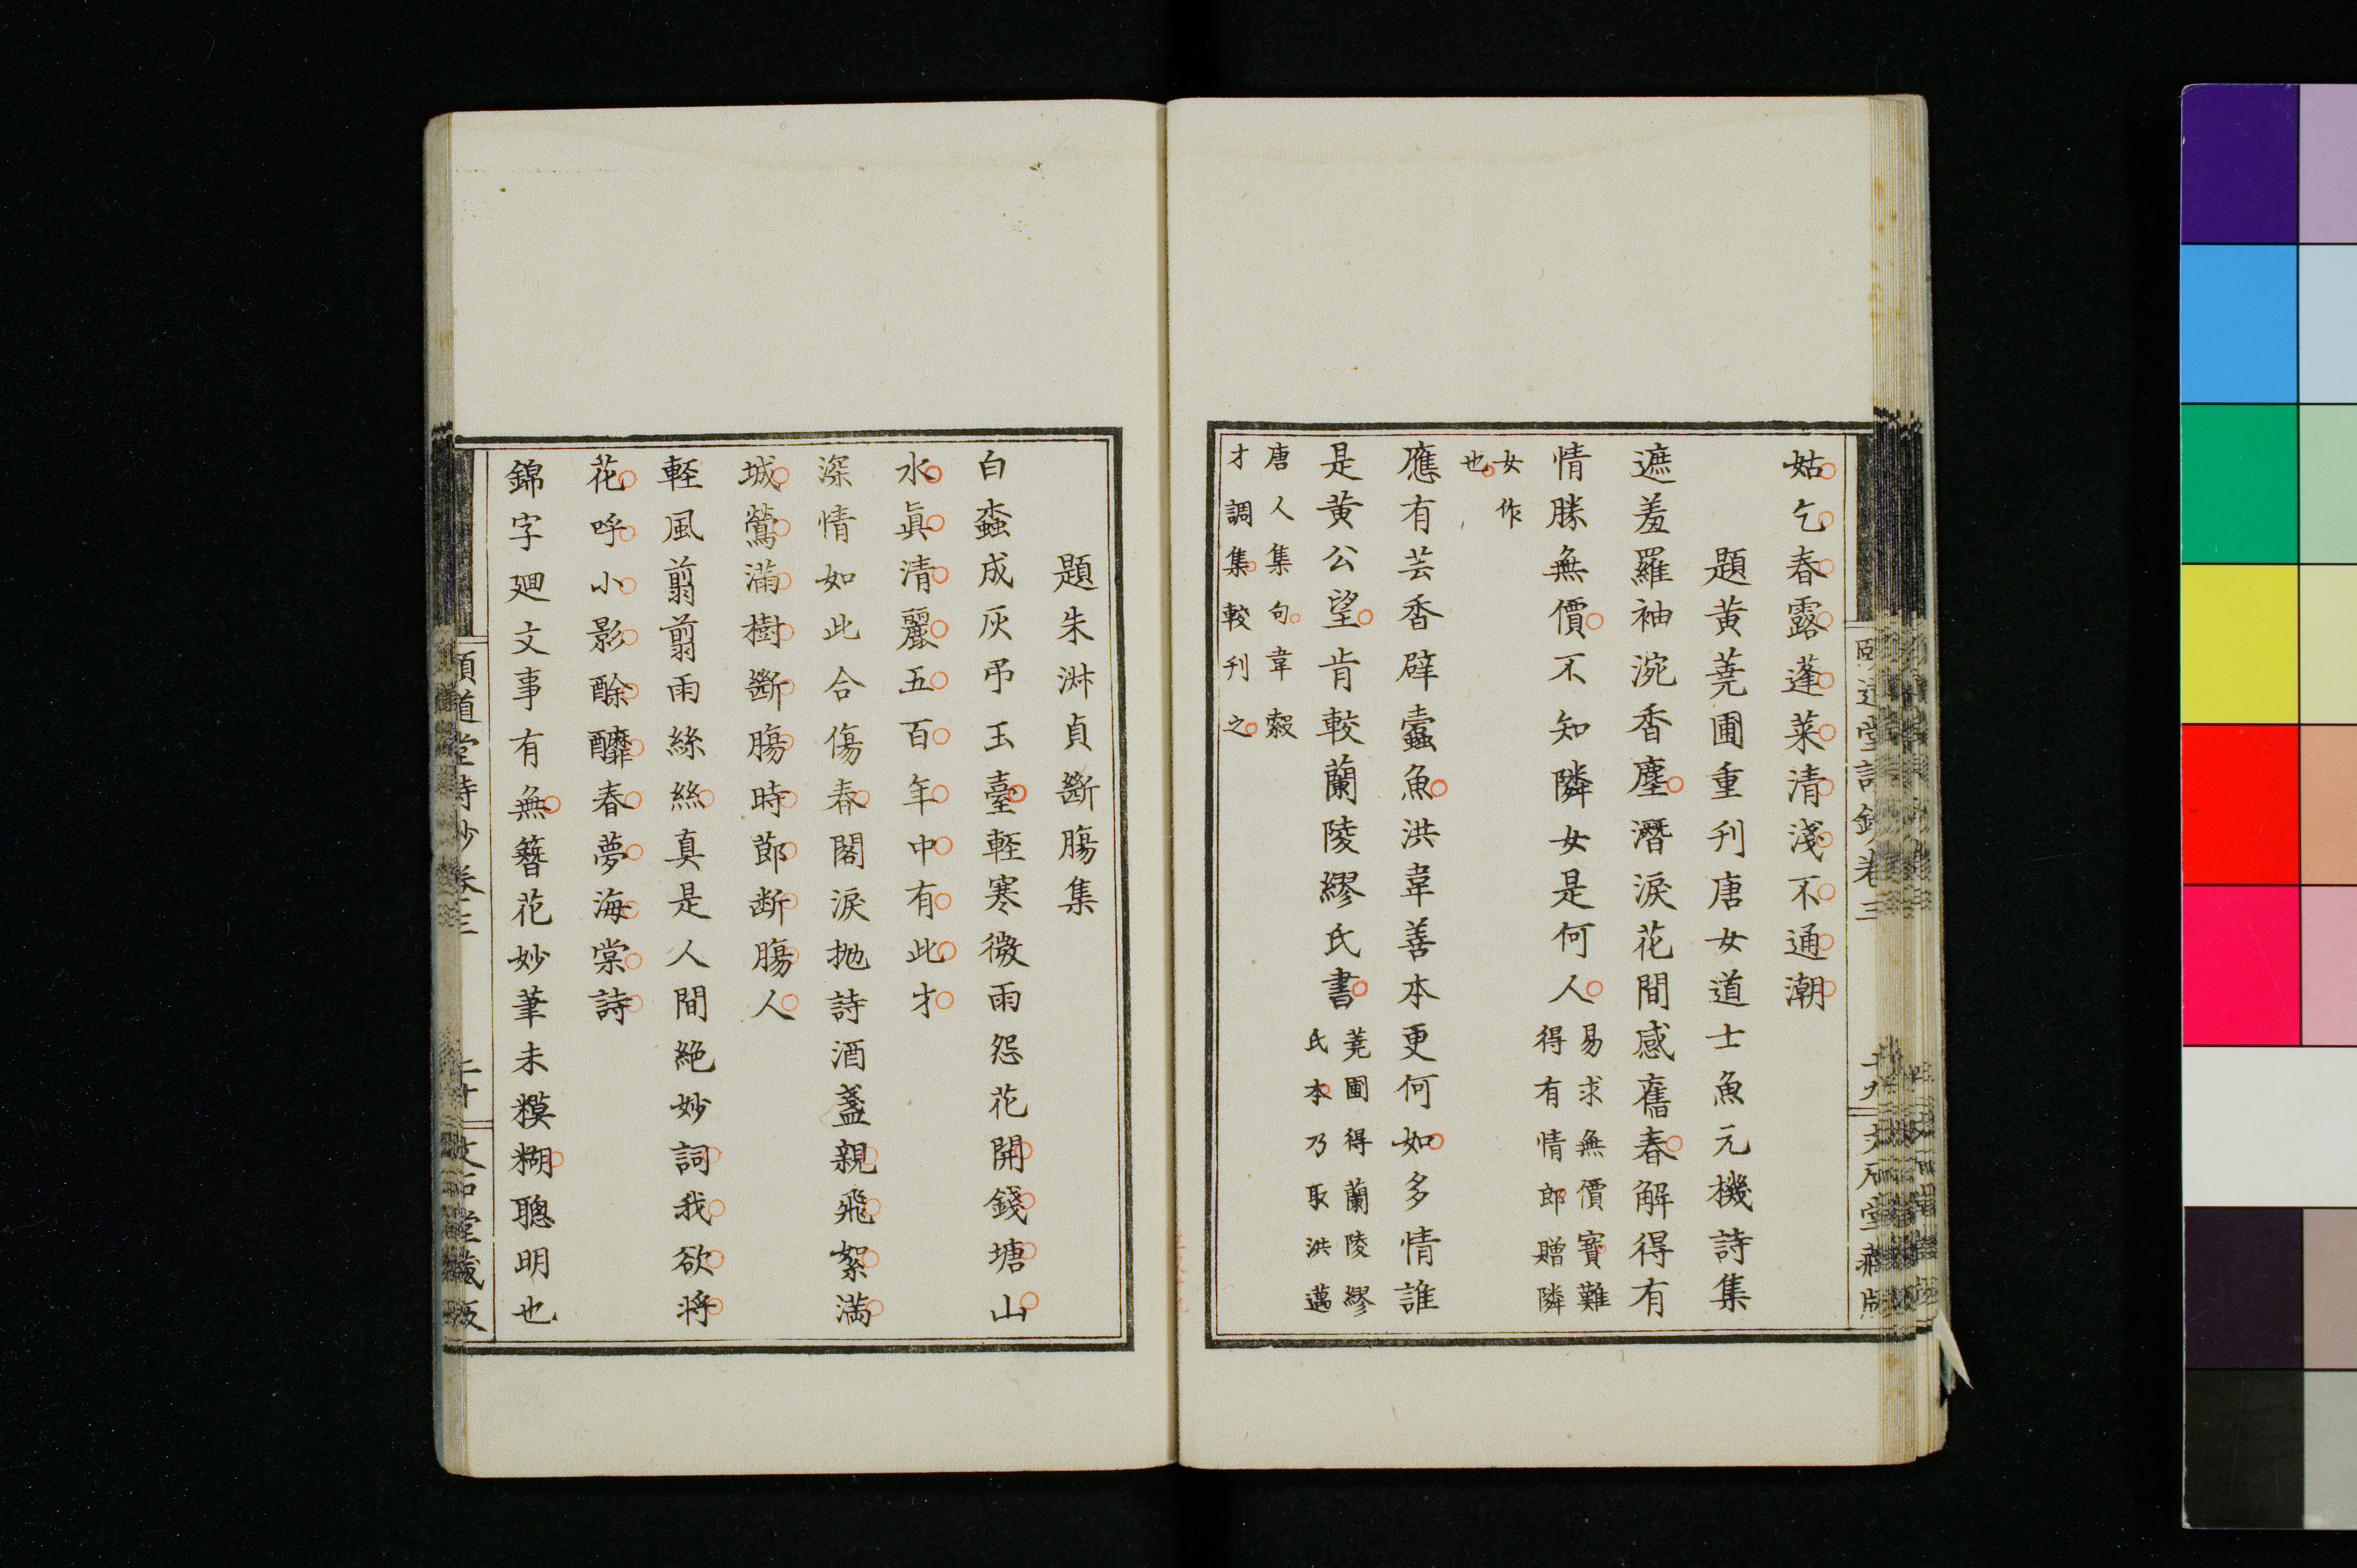 姑乞春露蓬萊清淺不通潮
題黃蕘圃重刊唐女道士魚元機詩集
遮羞羅袖涴香塵潛淚花間感舊春解得有
情勝無價不知隣女是何人
易求無價寶難
得有情郎贈隣
女作
也
應有芸香辟蠧魚洪韋善本更何如多情誰
是黃公望肯較蘭陵繆氏書
蕘圃得蘭陵繆
氏本乃取洪邁
唐人集句韋縠
才調集較刊之
題朱淑貞斷膓集
白蟁成灰弔玉臺輊寒微雨怨花開錢塘山
水眞清麗五百年中有此才
深情如此合傷春閣淚拋詩酒盞親飛絮滿
城鶯滿樹斷膓時節断膓人
輊風翦翦雨絲絲真是人間絶妙詞我欲将
花呼小影酴醾春夢海棠詩
錦字廻文事有無簪花妙筆未糢糊聰明也
頤道堂詩鈔卷三
二十